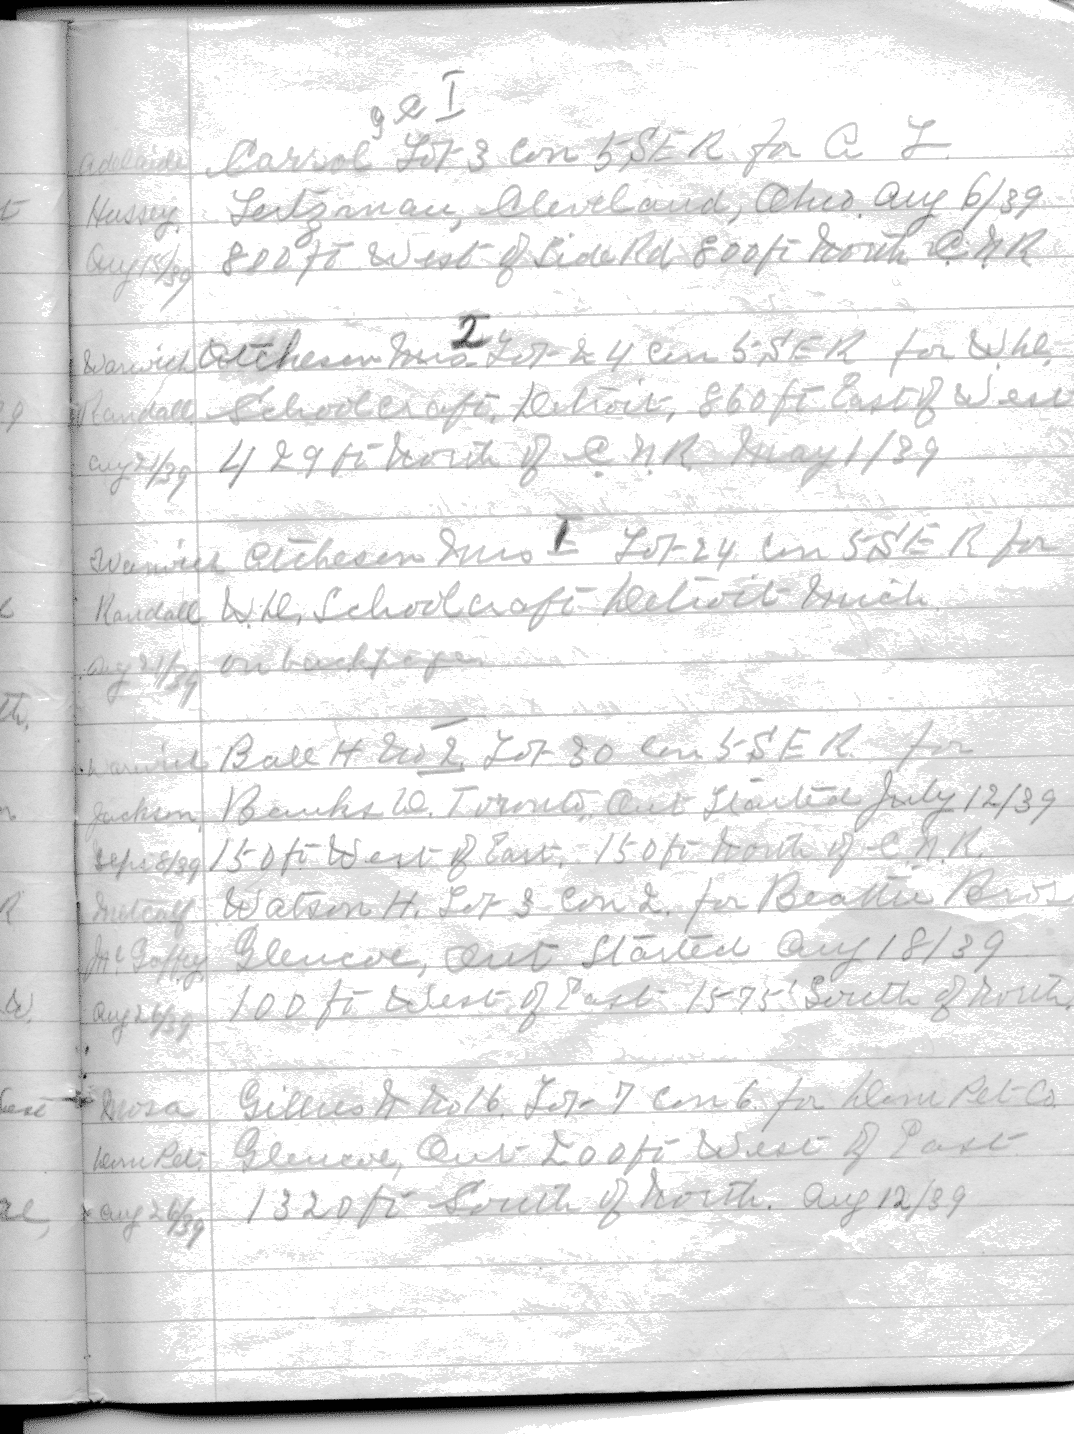 I
Adelaide Carrol Lot 3 Con 5 S E R for A L.
Hussey. Leitzman, Cleveland, Ohio. Aug 6/39
Aug 15/39 800 ft West of Side Rd 800 ft North C.N.R
2
Warwick Atcheson Lot 24 Con 5 S E R for W.
Randall Schoolcraft, Detroit, 860 ft East of West
Aug 21/39 429 ft North of C.N.R May 1/39
Warwick Atcheson No 1 Lot 24 Con 5 S E R for
Randall Schoolcraft Detroit Mich.
Aug 21/39 on back page
Warwick Ball H No 2. Lot 30 Con 5 S E R. for
Jackson. Banks Toronto, Ont Started July 12/39
Sept 8/39 150 ft West of East. 150 ft North of C.N.R.
Metcalf Watson H. Lot 3 Con 2. for Beattie Bros
Mc Gaffey Glencoe, Ont Started Aug 18/39
Aug 26/39 100 ft West of East 1575' South of North.
Mosa Gillies No 16. Lot 7 Con 6. for Dom Pet Co.
Dom Pet. Glencoe, Ont 200 ft West of East
Aug 26/39 1320 ft South of North. Aug 12/39